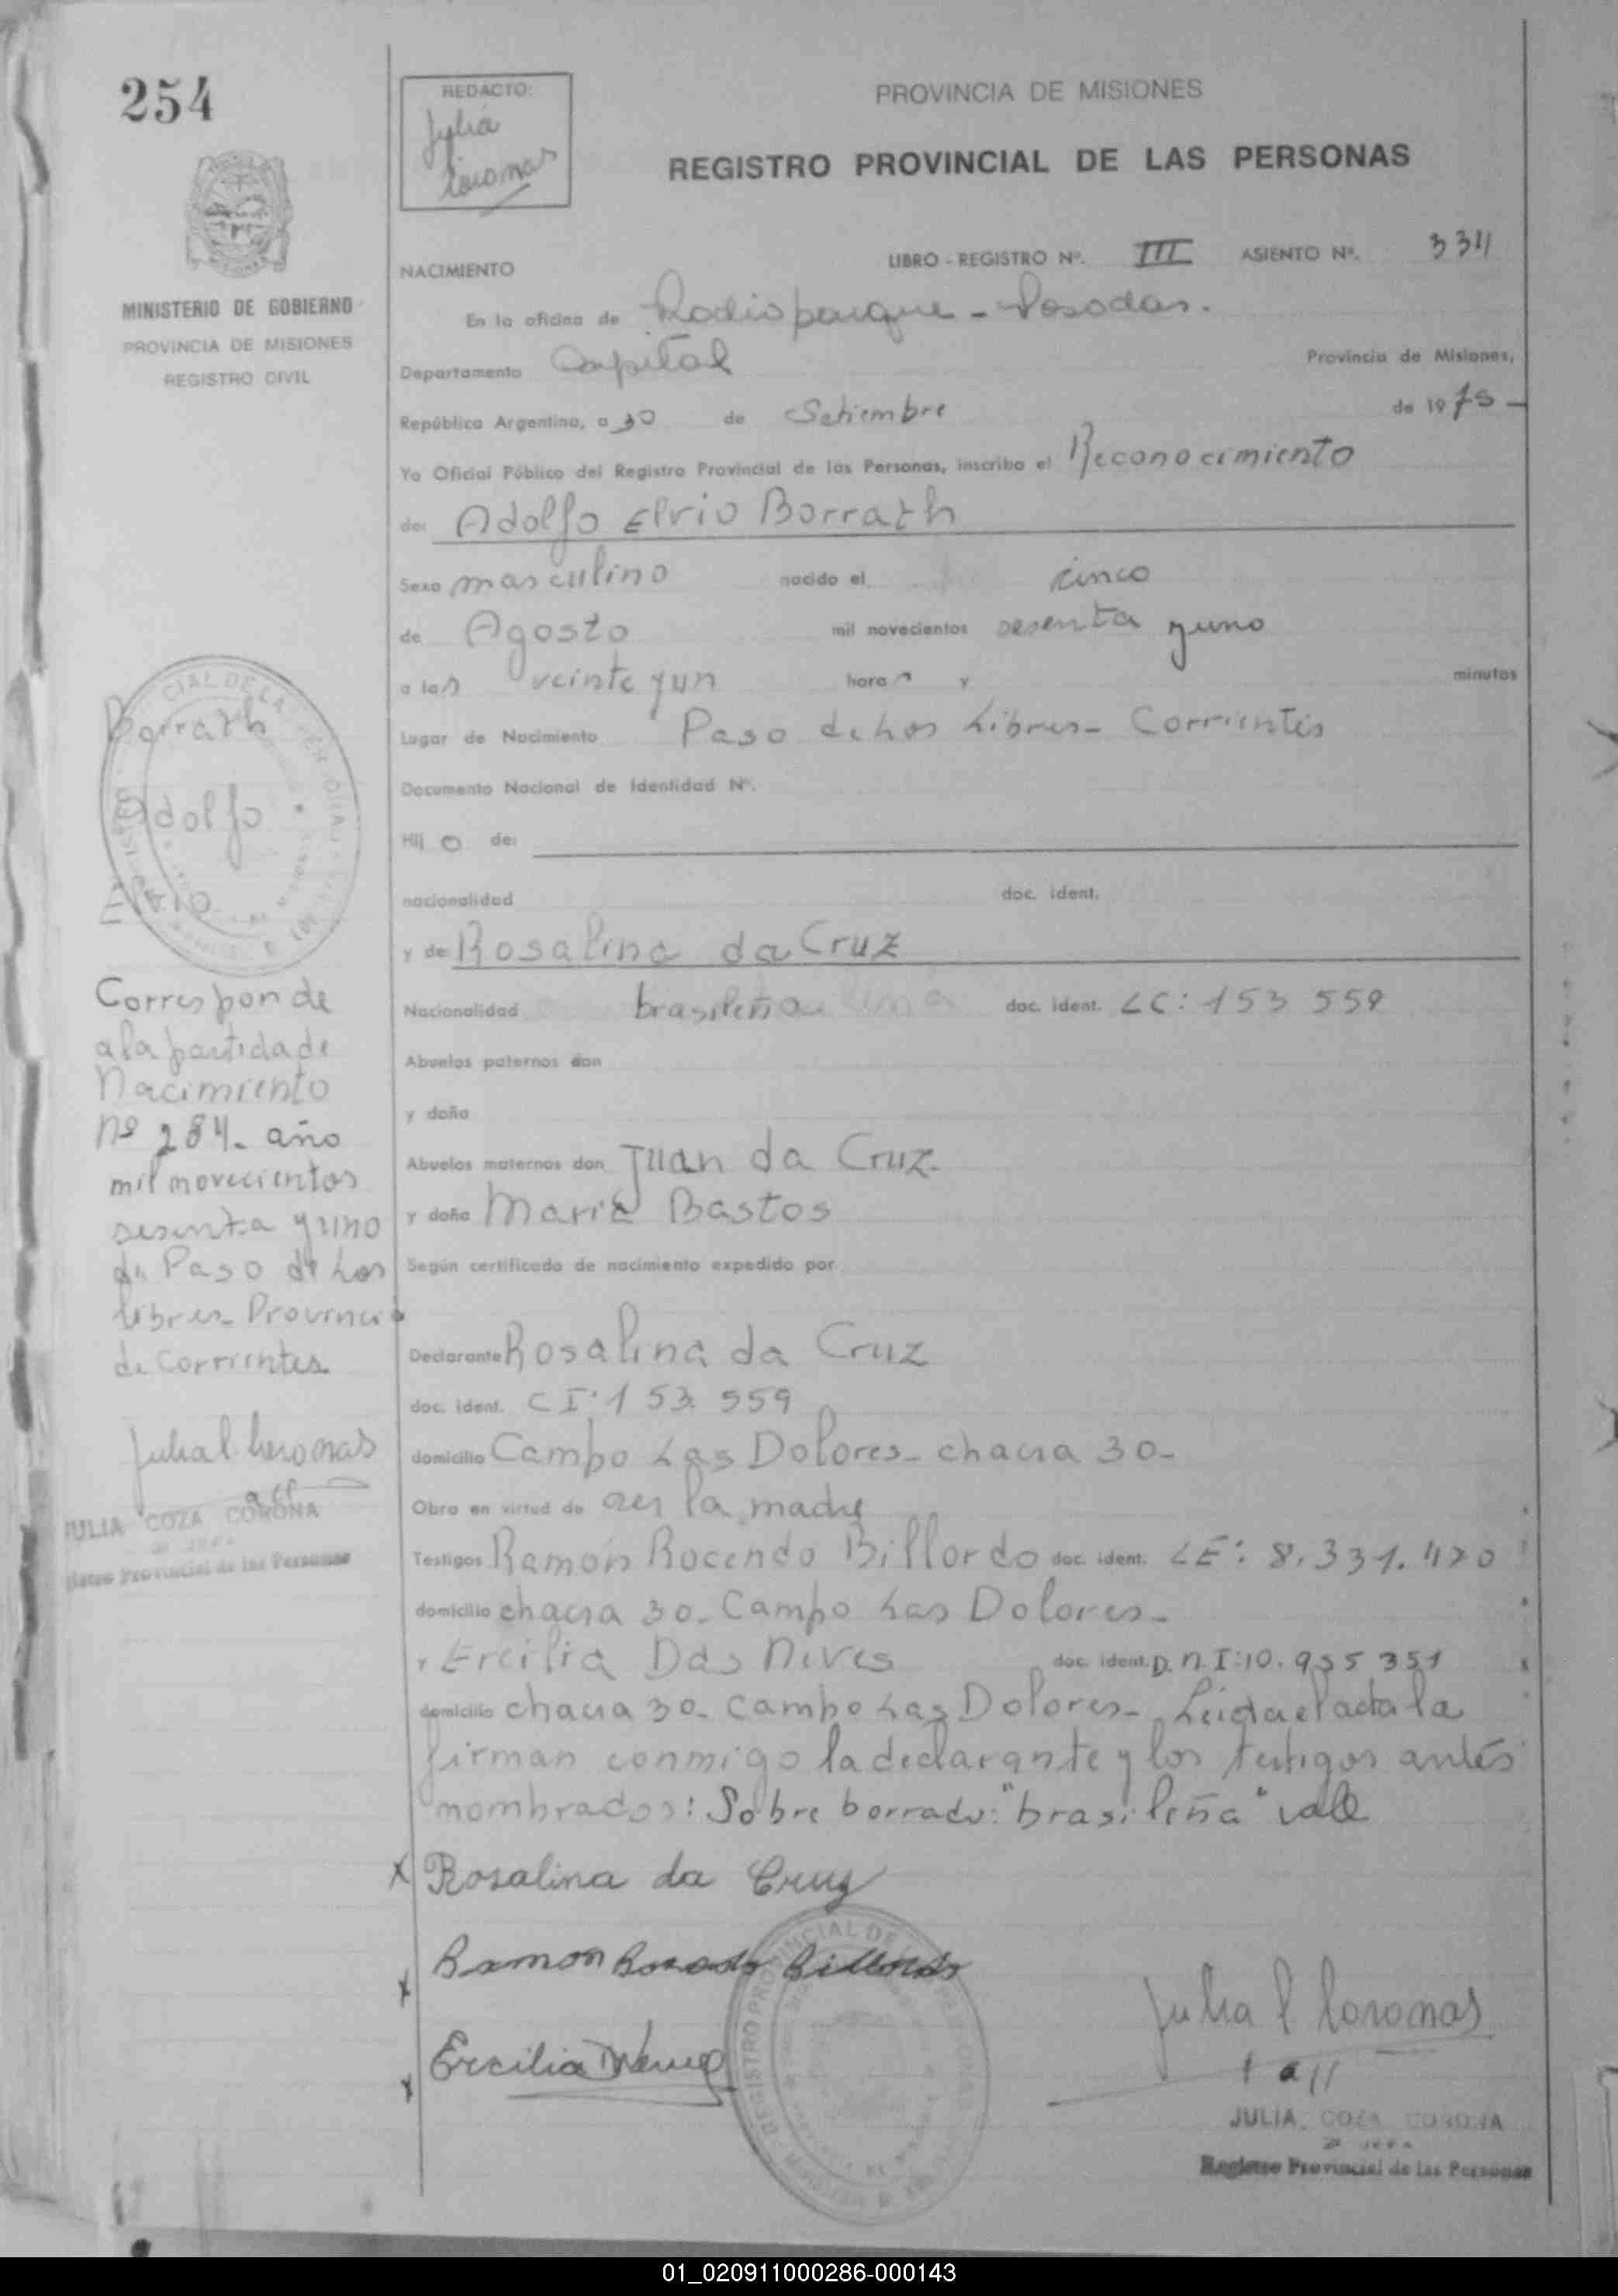 254
REDACTO:
Julia
Coronas
PROVINCIA DE MISIONES
REGISTRO PROVINCIAL DE LAS PERSONAS
MINISTERIO DE GOBIERNO
PROVINCIA DE MISIONES
REGISTRO CIVIL
NACIMIENTO
LIBRO - REGISTRO Nº. III ASIENTO Nº. 334
En la oficina de Radioparque - Posadas.
Departamento Capital Provincia de Misiones,
República Argentina, a 30 de Setiembre de 1975 -
Yo Oficial Público del Registro Provincial de las Personas, inscribo el Reconocimiento
de: Adolfo Elvio Borrath
Sexo masculino nacido el cinco
de Agosto mil novecientos sesenta y uno
a las veinte y un horas y minutos
Lugar de Nacimiento Paso de Los Libres - Corrientes
Documento Nacional de Identidad Nº.
Hijo de:
nacionalidad doc. ident.
y de Rosalina da Cruz
Nacionalidad brasileña doc. ident. LC: 153 559
Abuelos paternos don
y doña
Abuelos maternos don Juan da Cruz.
y doña Maria Bastos
Según certificado de nacimiento expedido por
Declarante Rosalina da Cruz
doc. ident. CI: 153. 559
domicilio Campo Las Dolores - chacra 30 -
Obra en virtud de ser la madre
Testigos Ramón Rocendo Billordo doc. ident. LE: 8.331.470
domicilio chacra 30 - Campo Las Dolores -
y Ercilia Das Nives doc. ident. D.N.I: 10.955 351
domicilio chacra 30 - Campo Las Dolores - Leida el acta la
firman conmigo la declarante y los testigos antes
nombrados: Sobre borrado: "brasileña" vale
x Rosalina da Cruz
x Ramon Rosendo Billordo
x Ercilia
Julia Coronas
JULIA COZA CORONA
2ª JEFA
Registro Provincial de las Personas
Borrath
Adolfo
Elvio
Corresponde
a la partida de
Nacimiento
Nº 284 - año
mil novecientos
sesenta y uno
de Paso de Los
Libres - Provincia
de Corrientes
Julia Coronas
JULIA COZA CORONA
2ª JEFA
Registro Provincial de las Personas
01_020911000286-000143